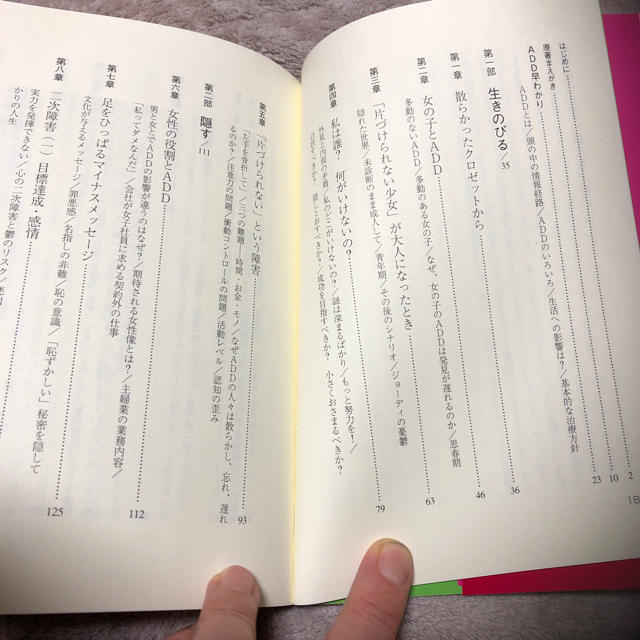 はじめに……2
原著まえがき……10
ADD早わかり……23
ADDとは/頭の中の情報経路/ADDのいろいろ/生活への影響は?/基本的な治療方針
第一部 生きのびる/35
第一章 散らかったクロゼットから……36
第二章 女の子とADD……46
多動のないADD/多動のある女の子/なぜ、女の子のADDは発見が遅れるのか/思春期
第三章 「片づけられない少女」が大人になったとき……63
隠れた世界/未診断のまま成人して/青年期/その後のシナリオ/ジョーディの憂鬱
第四章 私は誰? 何がいけないの?……79
外見と内面の矛盾/私のどこがいけないの?/謎は深まるばかり/もっと努力を!/
白状すべきか? 隠しとおすべきか?/成功を目指すべきか? 小さくおさまるべきか?
18
第五章 「片づけられない」という障害……93
「左手を骨折して」/三つの難題——時間、お金、モノ/なぜADDの人々は散らかし、忘れ、遅れ
るのか?/注意力の問題/衝動コントロールの問題/活動レベル/認知の歪み
第二部 隠す/111
第六章 女性の役割とADD……112
男と女とでADDの影響が違うのはなぜ?/期待される女性像とは?/主婦業の業務内容/
「私ってダメなんだ」/会社が女子社員に求める契約外の仕事
第七章 足をひっぱるマイナスメッセージ……125
文化が与えるメッセージ/罪悪感/名指しの非難/恥の意識/「恥ずかしい」秘密を隠して
第八章 二次障害(一) 目標達成、感情
実力を発揮できない/心の二次障害と鬱のリスク/
かりの人生